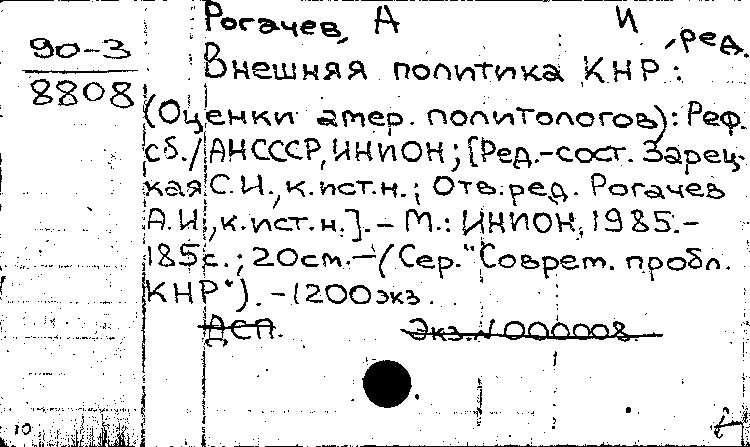 Рогачев, А И, ред.
90-3
8808
Внешняя политика КНР:
(Оценки амер. политологов): Реф.
сб./АНСССР, ИНИОН; [Ред.-сост. Зарец-
кая С.И., к.ист.н.; Отв.ред. Рогачев
А.И., к.ист.н.]. – М.: ИНИОН, 1985.–
185с.; 20см.–(Сер. "Соврем. пробл.
КНР"). –1200экз.
ДСП. Экз.N000008.
10